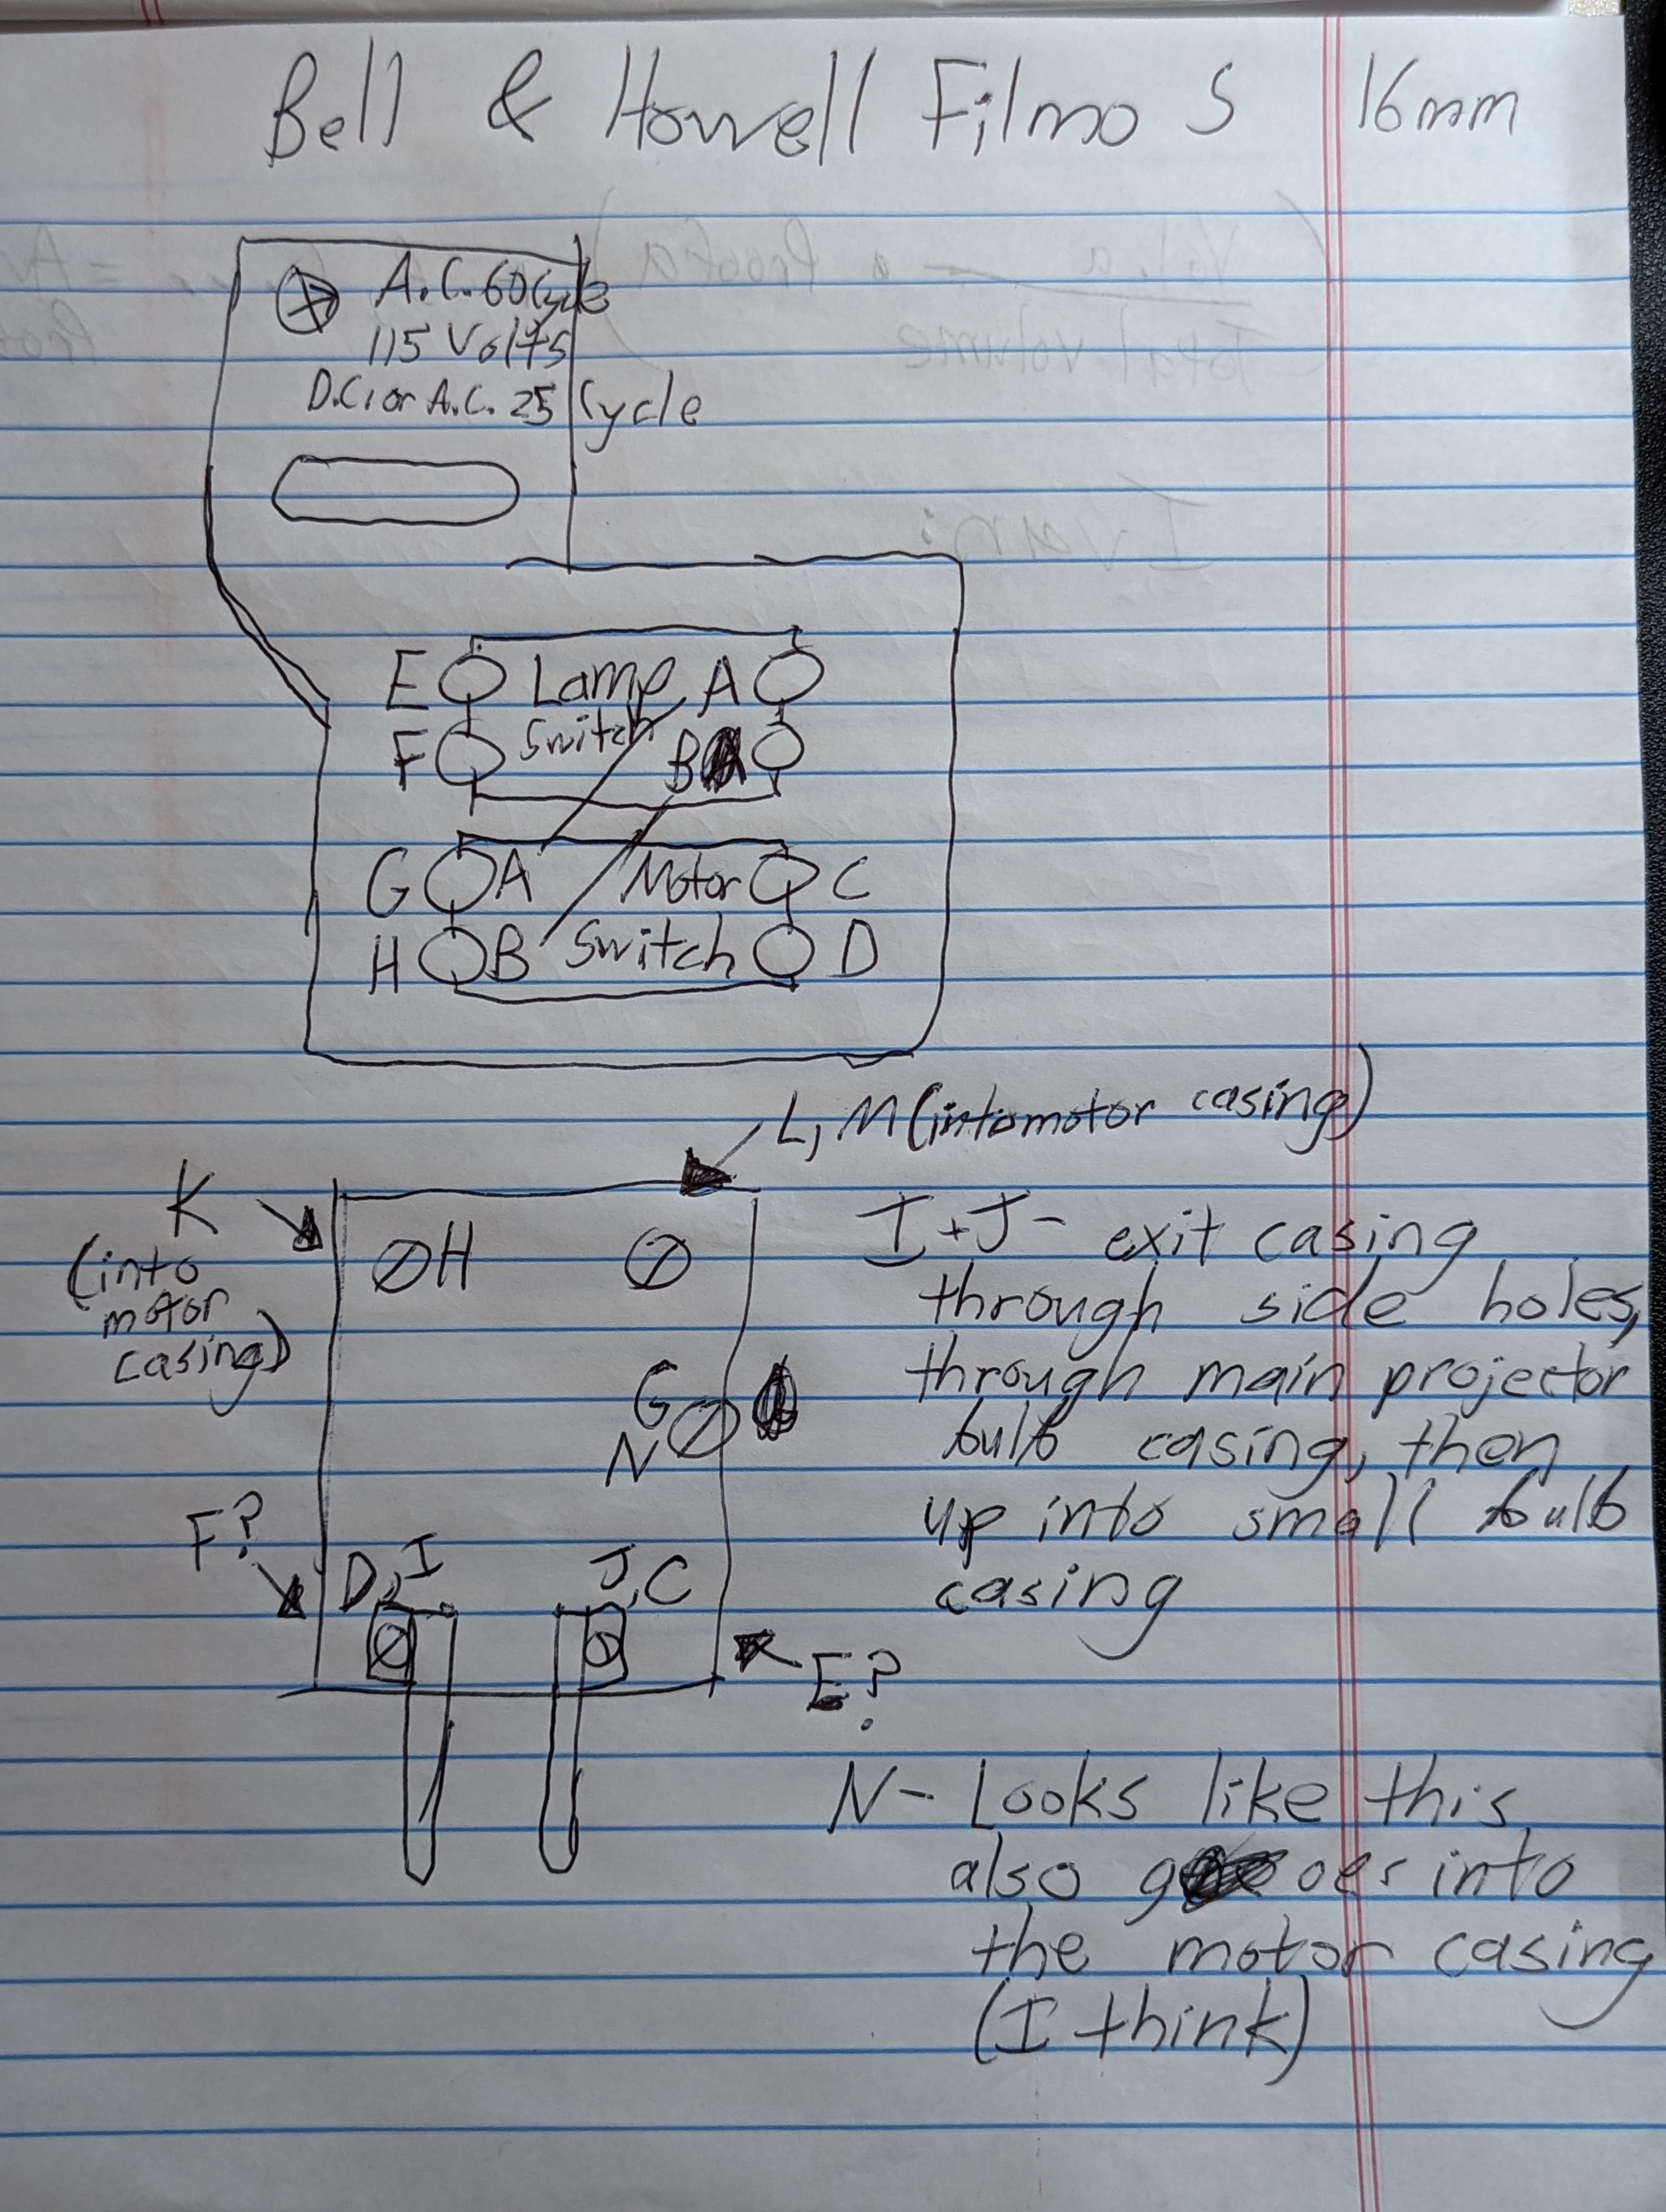 Bell & Howell Filmo S 16mm
A.C. 60 Cycle
115 Volts
D.C. or A.C. 25 Cycle
E Lamp A
F Switch B
G A Motor C
H B Switch D
L, M (into motor casing)
K
(into
motor
casing)
H
G
N
F?
D, I
J, C
E?
I + J - exit casing
through side holes,
through main projector
bulb casing, then
up into small bulb
casing
N - Looks like this
also goes into
the motor casing
(I think)
Total volume
Ivan: